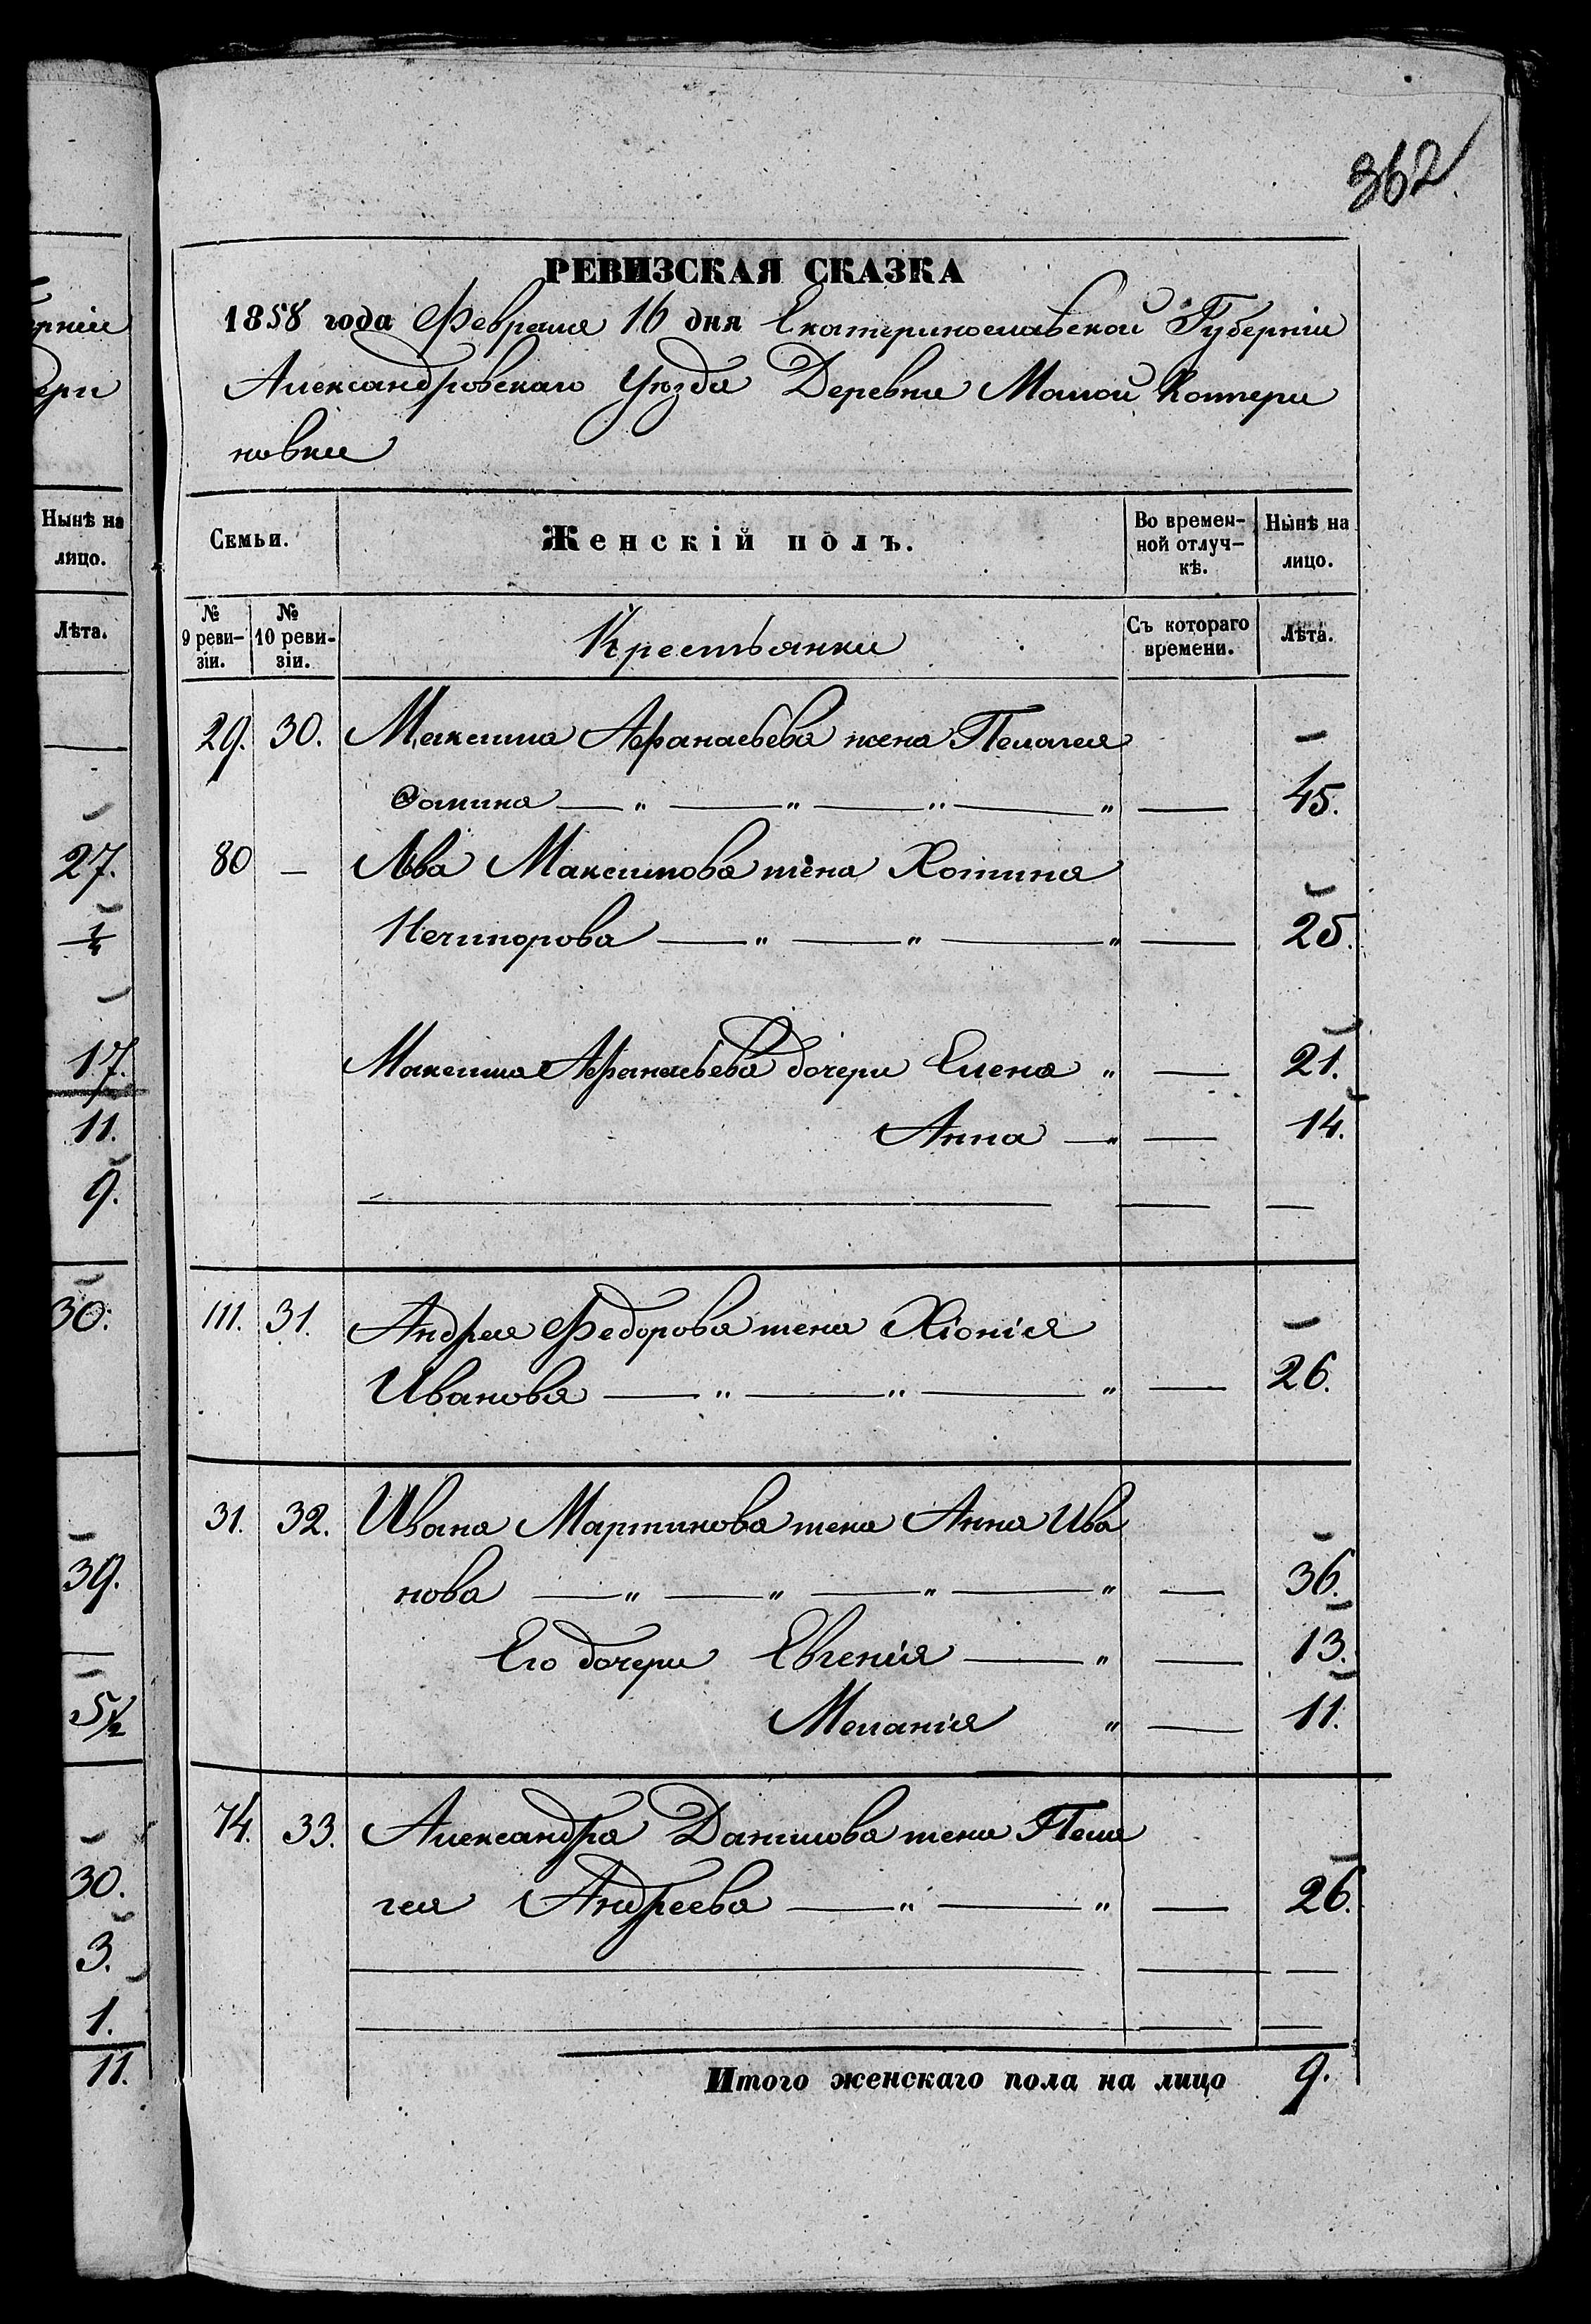 362
РЕВИЗСКАЯ СКАЗКА
1858 года Февраля 16 дня Екатеринославской Губерніи
Александровскаго Уѣзда Деревни Малой Катери
новки
Нынѣ на
лицо.
Лѣта.
27.
17.
11.
9.
30.
39.
5½
30.
3.
1.
11.
Семьи.
Женскій полъ.
Во времен-
ной отлуч-
кѣ.
Нынѣ на
лицо.
№
9 реви-
зіи.
№
10 реви-
зіи.
Крестьянки
Съ котораго
времени.
Лѣта.
29. 30. Максима Афанасьева жена Пелагея —
Фомина — " — " — " — " — 45.
80 — Льва Максимова жена Хотина
Нечипорова — " — " — " — 25.
Максима Афанасьева дочери Елена " — 21.
Анна — " — 14.
111. 31. Андрея Федорова жена Хіонія
Иванова — " — " — " — 26.
31. 32. Ивана Мартинова жена Анна Ива
нова — " — " — " — " — 36.
Его дочери Евгенія — " — 13.
Меланія " — 11.
74. 33. Александра Данилова жена Пела
гея Андреева — " — " — 26.
Итого женскаго пола на лицо 9.